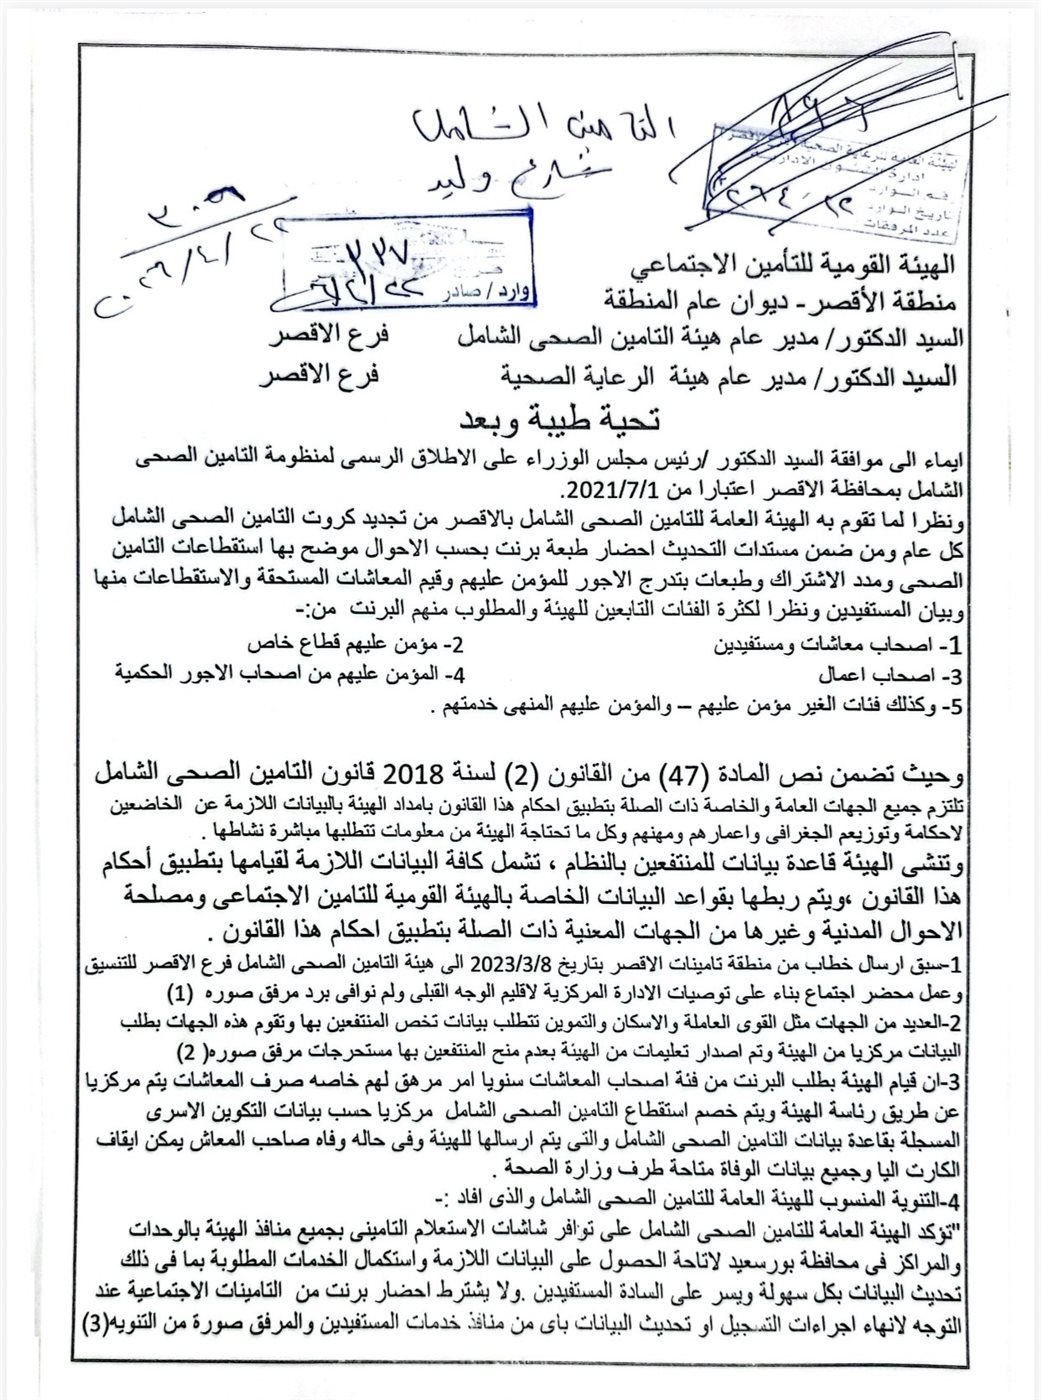 التامين الشامل
شارع وليد
٣٠٥٩
٢٠٢٦/٤/٢٢
٨٩٦
الهيئة العامة للرعاية الصحية
ادارة الشئون الادارية
رقم الوارد
تاريخ الوارد
عدد المرفقات
٣٣٧
وارد / صادر
الهيئة القومية للتأمين الاجتماعي
منطقة الأقصر - ديوان عام المنطقة
السيد الدكتور/ مدير عام هيئة التامين الصحى الشامل فرع الاقصر
السيد الدكتور/ مدير عام هيئة الرعاية الصحية فرع الاقصر
تحية طيبة وبعد
ايماء الى موافقة السيد الدكتور /رئيس مجلس الوزراء على الاطلاق الرسمى لمنظومة التامين الصحى
الشامل بمحافظة الاقصر اعتبارا من 2021/7/1.
ونظرا لما تقوم به الهيئة العامة للتامين الصحى الشامل بالاقصر من تجديد كروت التامين الصحى الشامل
كل عام ومن ضمن مستدات التحديث احضار طبعة برنت بحسب الاحوال موضح بها استقطاعات التامين
الصحى ومدد الاشتراك وطبعات بتدرج الاجور للمؤمن عليهم وقيم المعاشات المستحقة والاستقطاعات منها
وبيان المستفيدين ونظرا لكثرة الفئات التابعين للهيئة والمطلوب منهم البرنت من:-
1- اصحاب معاشات ومستفيدين 2- مؤمن عليهم قطاع خاص
3- اصحاب اعمال 4- المؤمن عليهم من اصحاب الاجور الحكمية
5- وكذلك فئات الغير مؤمن عليهم – والمؤمن عليهم المنهى خدمتهم .
وحيث تضمن نص المادة (47) من القانون (2) لسنة 2018 قانون التامين الصحى الشامل
تلتزم جميع الجهات العامة والخاصة ذات الصلة بتطبيق احكام هذا القانون بامداد الهيئة بالبيانات اللازمة عن الخاضعين
لاحكامة وتوزيعم الجغرافى واعمارهم ومهنهم وكل ما تحتاجة الهيئة من معلومات تتطلبها مباشرة نشاطها .
وتنشى الهيئة قاعدة بيانات للمنتفعين بالنظام ، تشمل كافة البيانات اللازمة لقيامها بتطبيق أحكام
هذا القانون ،ويتم ربطها بقواعد البيانات الخاصة بالهيئة القومية للتامين الاجتماعى ومصلحة
الاحوال المدنية وغيرها من الجهات المعنية ذات الصلة بتطبيق احكام هذا القانون .
1-سبق ارسال خطاب من منطقة تامينات الاقصر بتاريخ 2023/3/8 الى هيئة التامين الصحى الشامل فرع الاقصر للتنسيق
وعمل محضر اجتماع بناء على توصيات الادارة المركزية لاقليم الوجه القبلى ولم نوافى برد مرفق صوره (1)
2-العديد من الجهات مثل القوى العاملة والاسكان والتموين تتطلب بيانات تخص المنتفعين بها وتقوم هذه الجهات بطلب
البيانات مركزيا من الهيئة وتم اصدار تعليمات من الهيئة بعدم منح المنتفعين بها مستحرجات مرفق صوره( 2)
3-ان قيام الهيئة بطلب البرنت من فئة اصحاب المعاشات سنويا امر مرهق لهم خاصه صرف المعاشات يتم مركزيا
عن طريق رئاسة الهيئة ويتم خصم استقطاع التامين الصحى الشامل مركزيا حسب بيانات التكوين الاسرى
المسجلة بقاعدة بيانات التامين الصحى الشامل والتى يتم ارسالها للهيئة وفى حاله وفاه صاحب المعاش يمكن ايقاف
الكارت اليا وجميع بيانات الوفاة متاحة طرف وزارة الصحة .
4-التنوية المنسوب للهيئة العامة للتامين الصحى الشامل والذى افاد :-
"تؤكد الهيئة العامة للتامين الصحى الشامل على توافر شاشات الاستعلام التامينى بجميع منافذ الهيئة بالوحدات
والمراكز فى محافظة بورسعيد لاتاحة الحصول على البيانات اللازمة واستكمال الخدمات المطلوبة بما فى ذلك
تحديث البيانات بكل سهولة ويسر على السادة المستفيدين .ولا يشترط احضار برنت من التامينات الاجتماعية عند
التوجه لانهاء اجراءات التسجيل او تحديث البيانات باى من منافذ خدمات المستفيدين والمرفق صورة من التنويه(3)